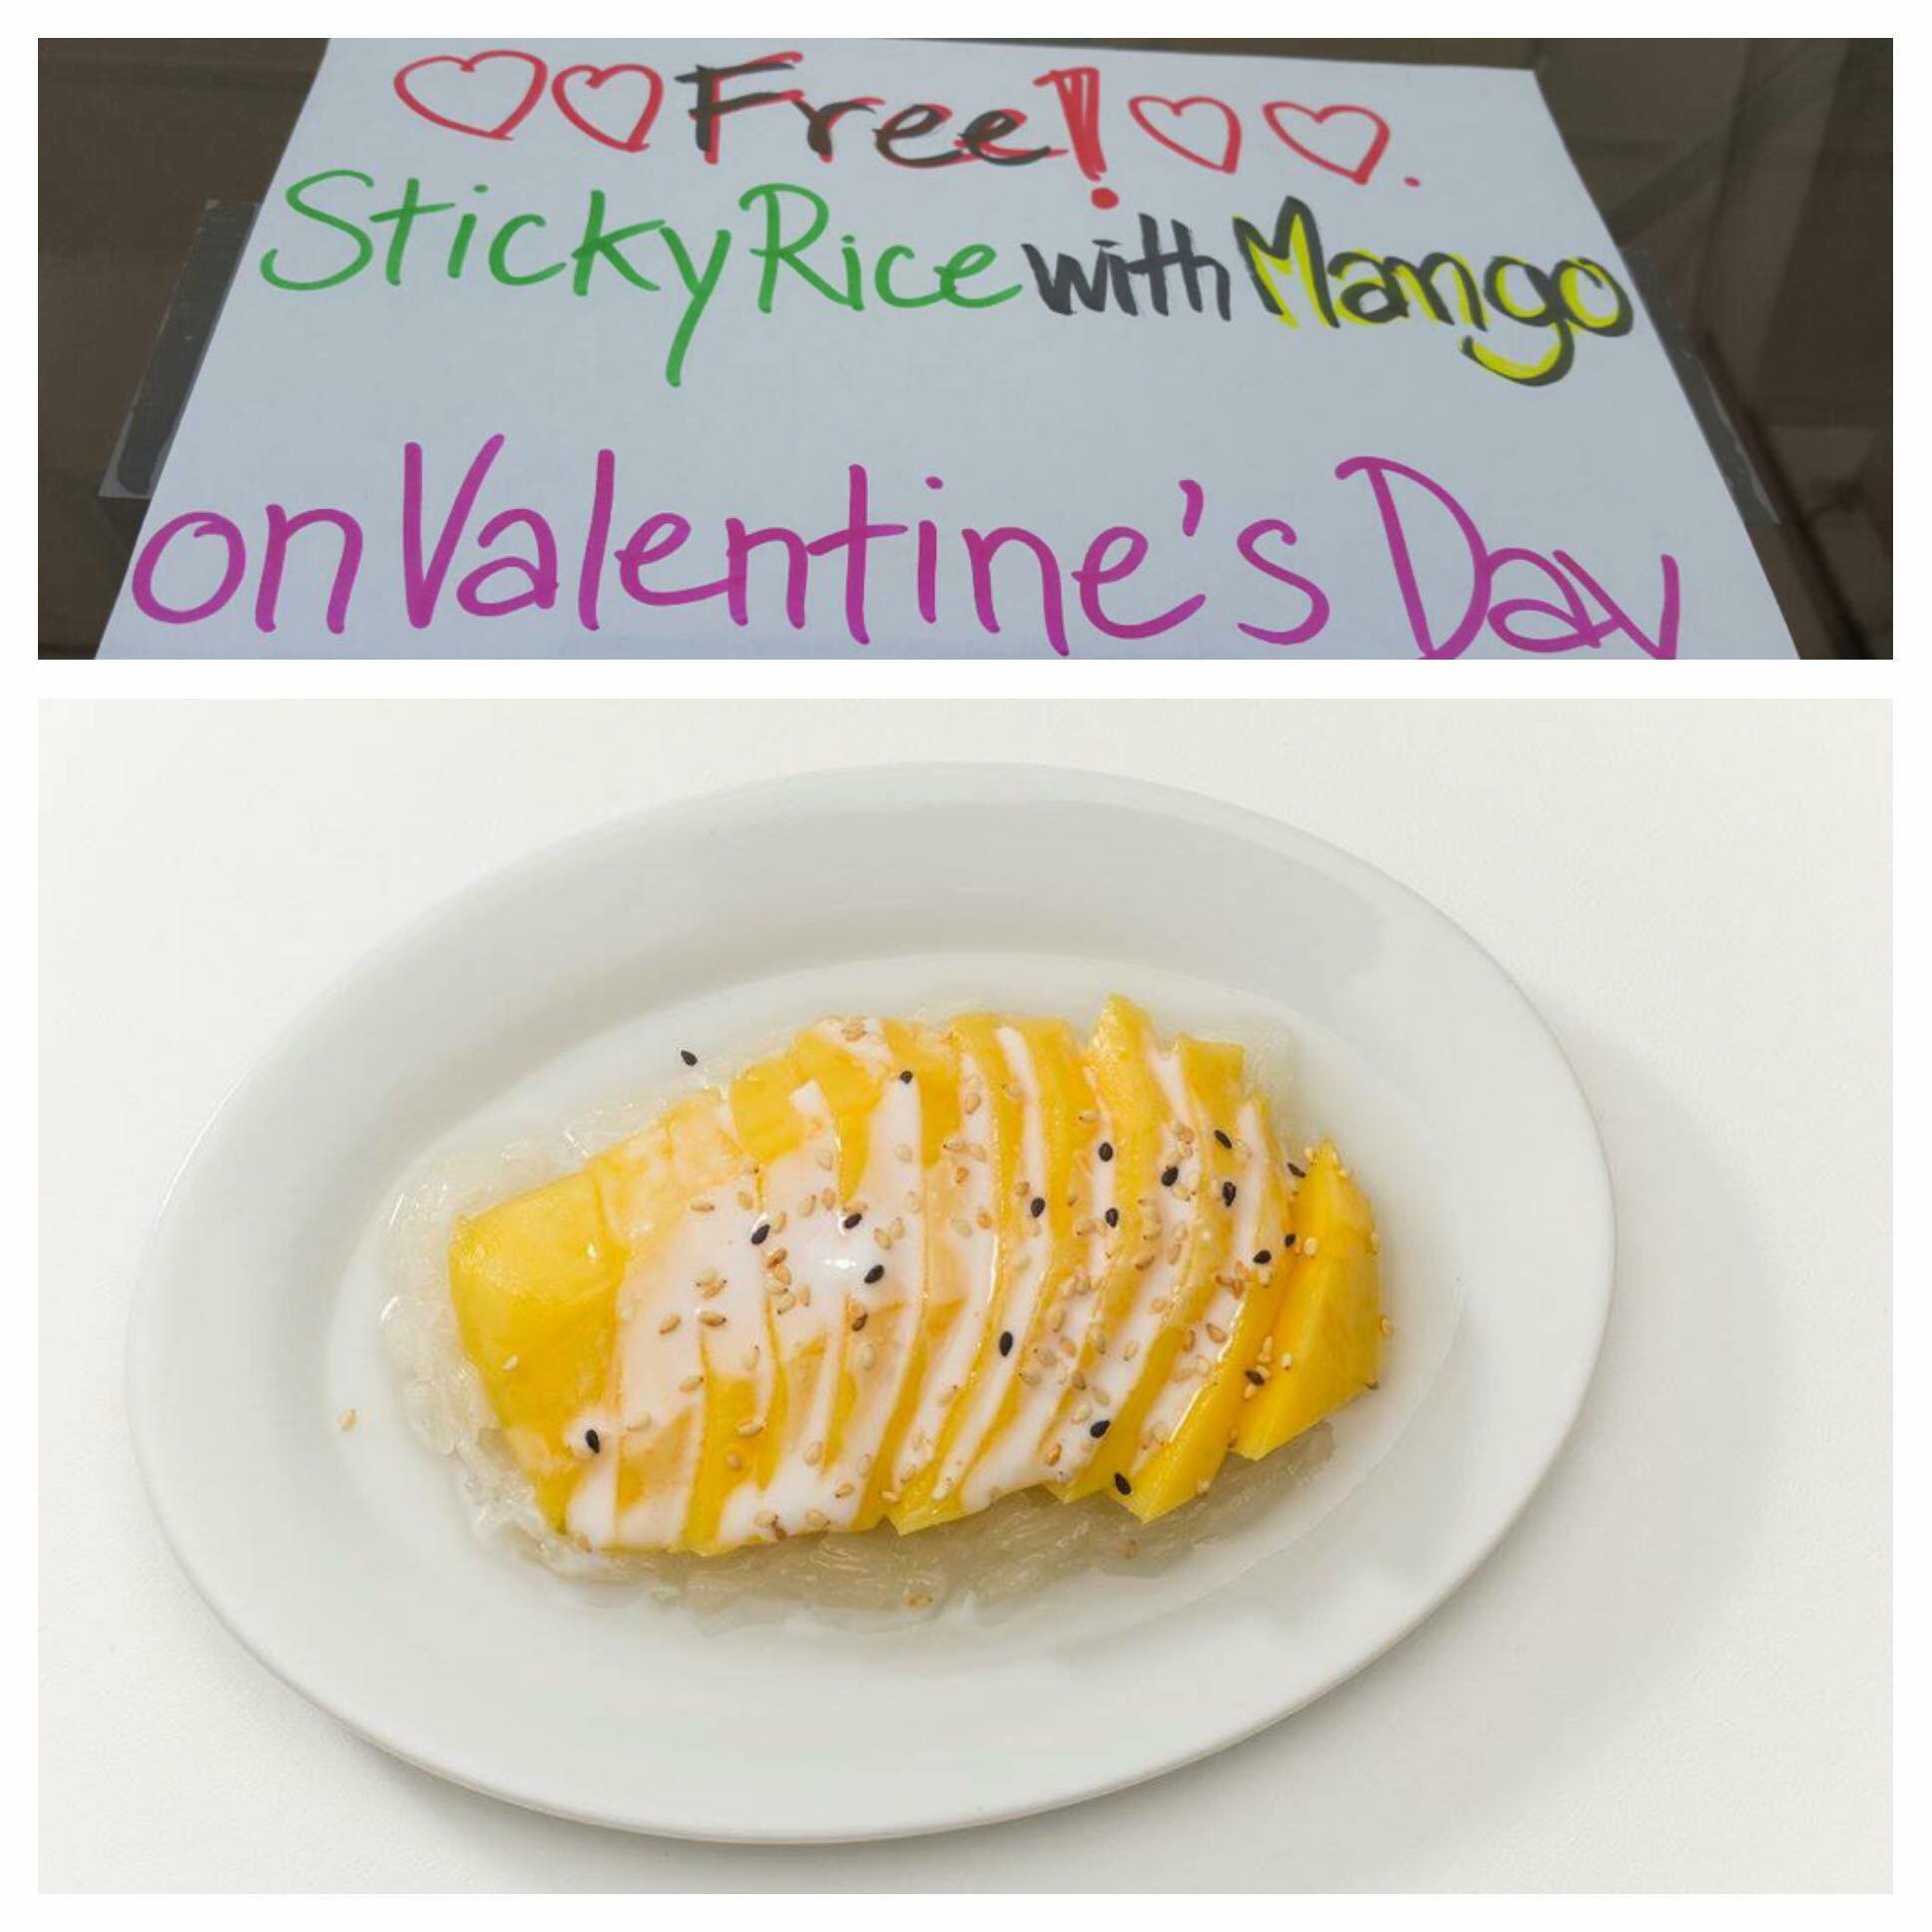 Free!
Sticky Rice with Mango
on Valentine's Day